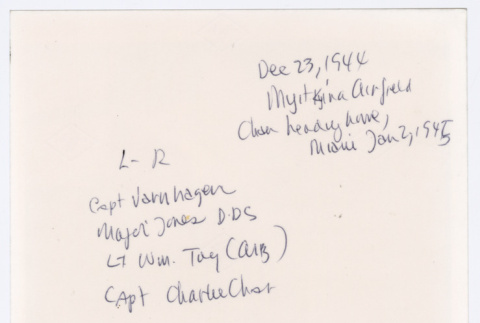 Dec 23, 1944
Myitkyina Airfield
Chan heading home,
Miami Jan 2, 1945
L - R
Capt Varnhagen
Major Jones D.DS
LT Wm. Toy
Capt Charlie Chan